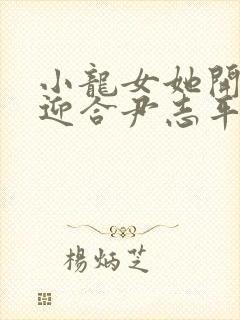 小龍女她開
迎合尹志平
楊炳芝